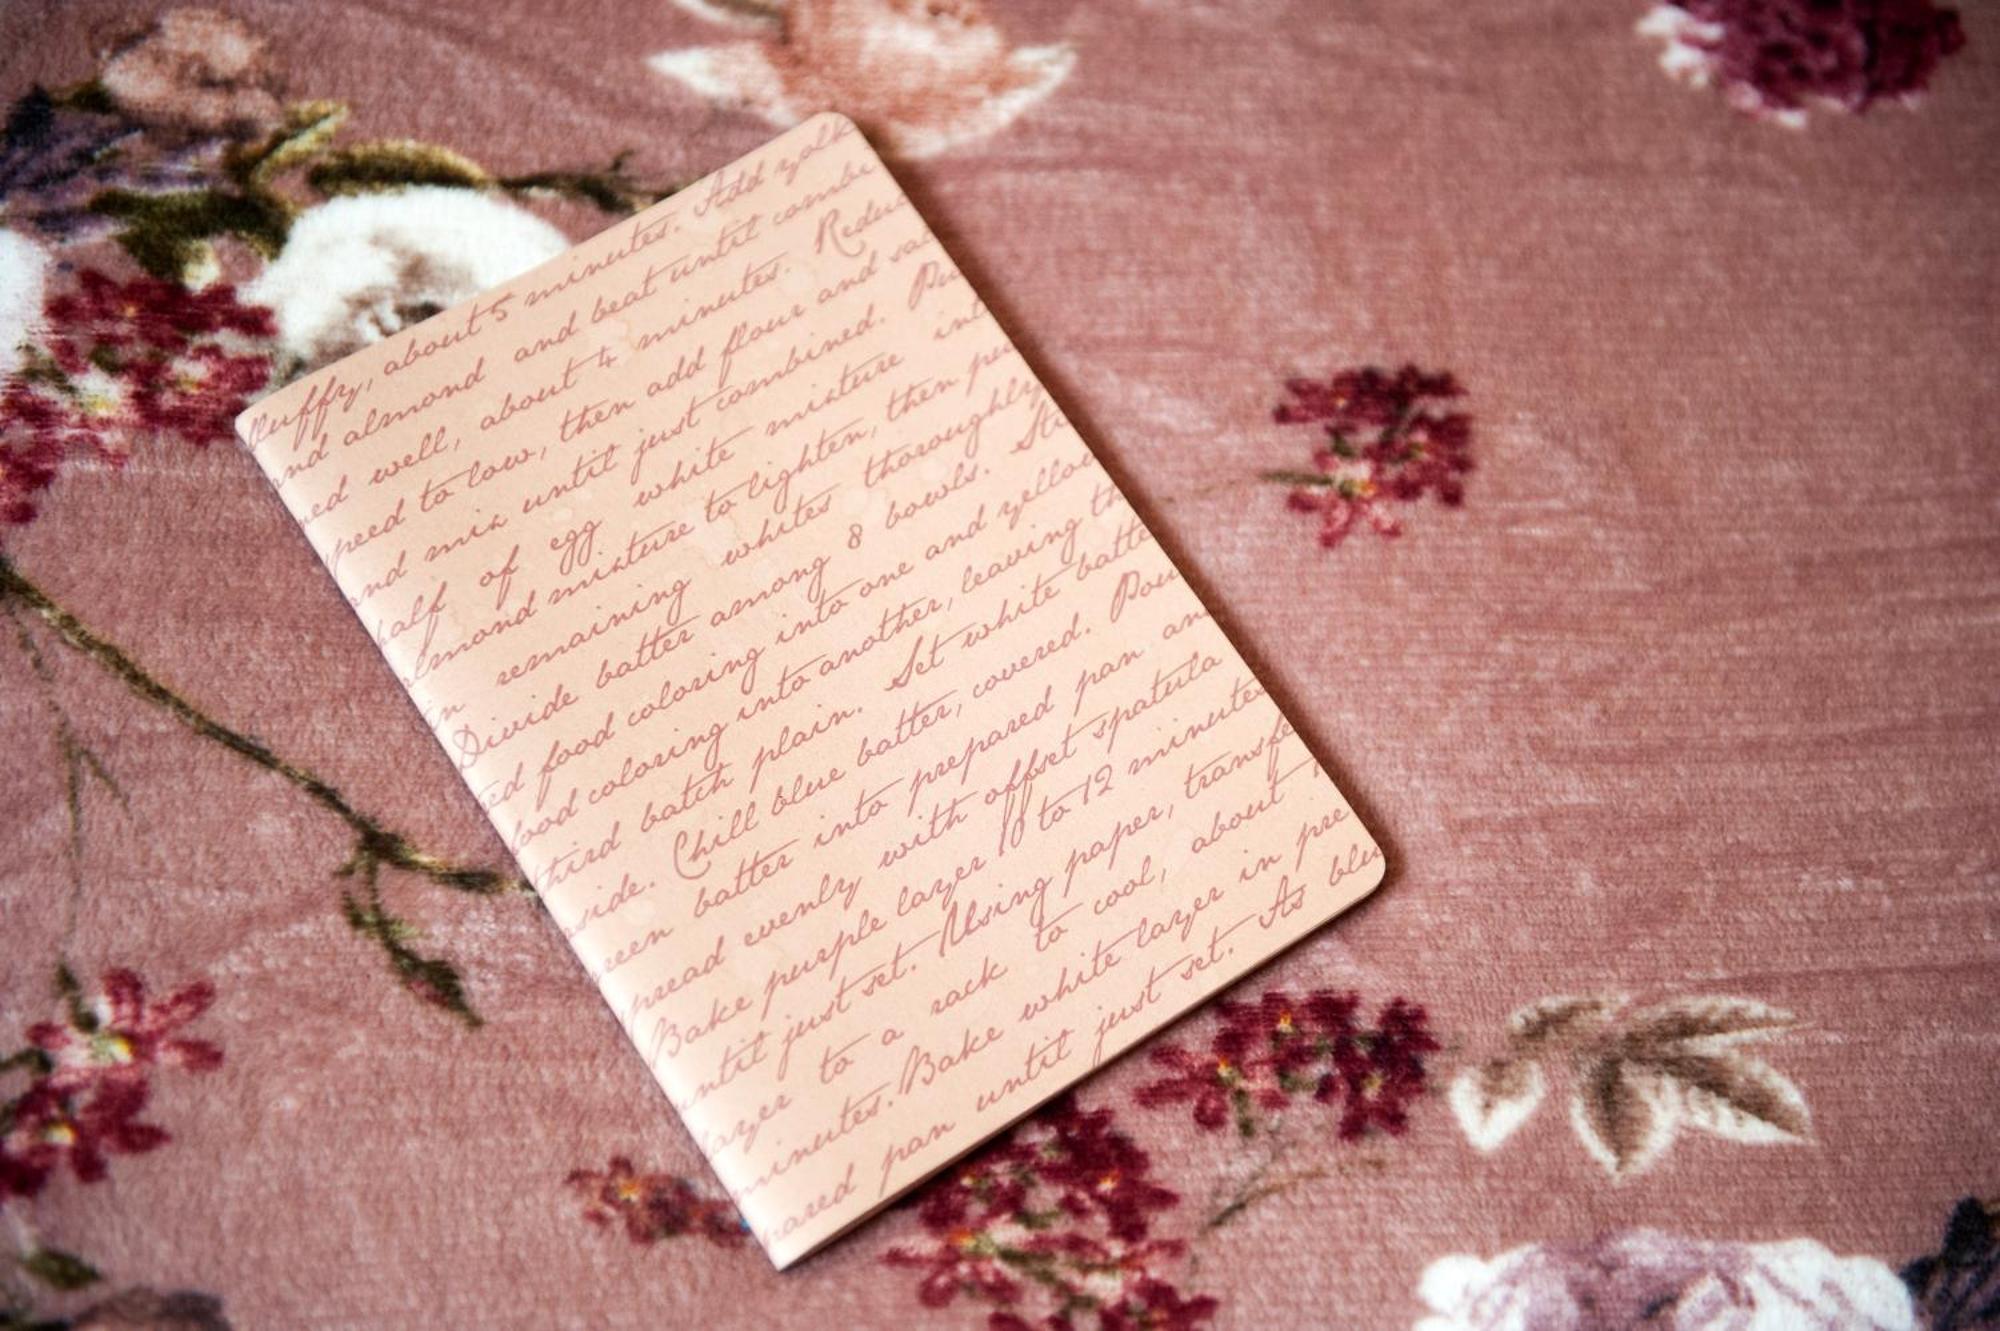 fluffy, about 5 minutes. Add yolk
nd almond and beat until combi
ned well, about 4 minutes. Redu
peed to low, then add flour and sa
and mix until just combined. Pu
half of egg white mixture int
almond mixture to lighten, then
in remaining whites thoroughly
Divide batter among 8 bowls. Sti
ed food coloring into one and yellow
food coloring into another, leaving th
third batch plain. Set white batte
side. Chill blue batter, covered. Pou
reen batter into prepared pan an
pread evenly with offset spatula
Bake purple layer 10 to 12 minutes
until just set. Using paper, transfe
layer to a rack to cool, about
minutes. Bake white layer in pre
pared pan until just set. As blu